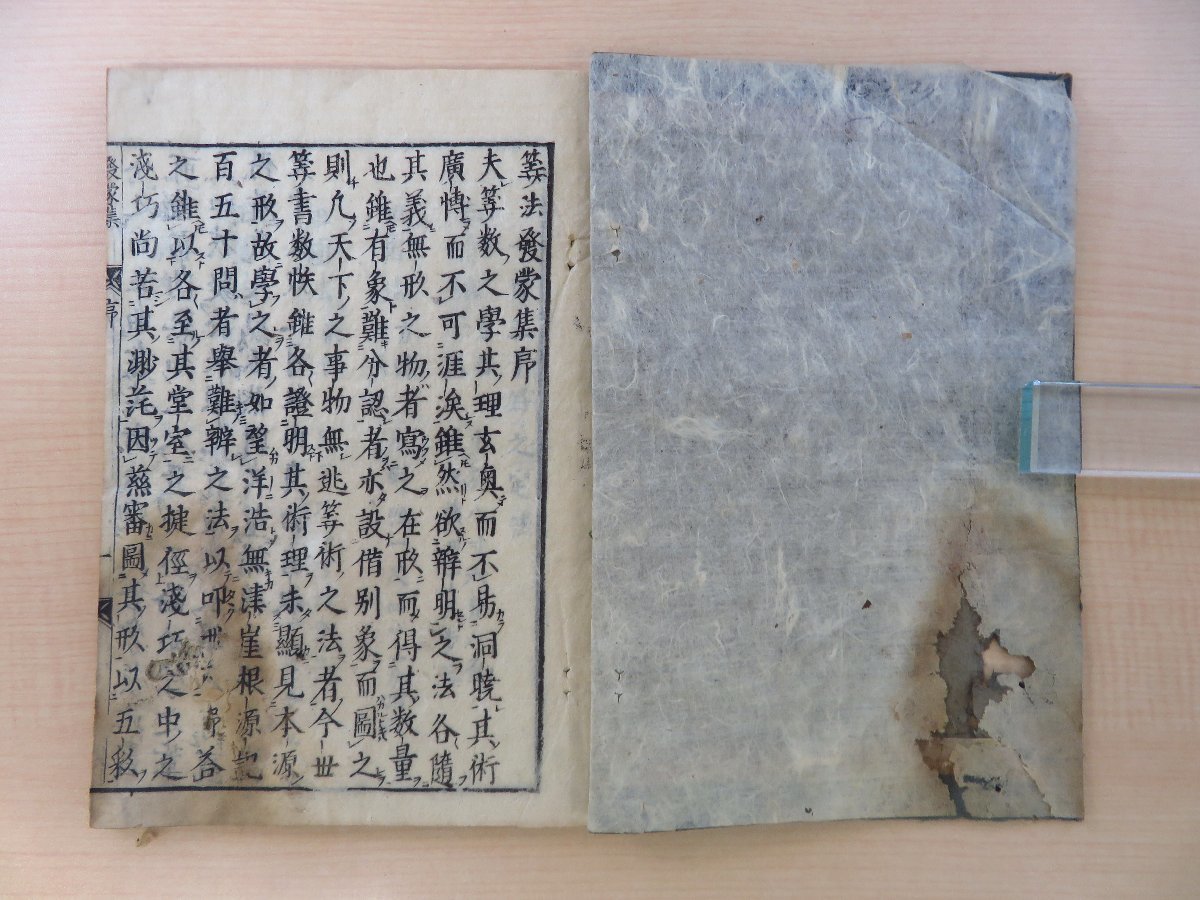 筭法發蒙集序
夫筭数之學其理玄奥而不易洞曉其術
廣慱而不可涯涘雖然欲辨明之法各隨
其義無形之物者寫之在形而得其数量
也雖有象難分認者亦設借别象而圖之
則凢天下之事物無逃筭術之法者今世
筭書数帙雖各證明其術理未顯見本源
之形故學之者如望洋浩無津崖根源記
百五十問者舉難辨之法以叩世 答
之雖以各至其堂室之捷徑淺巧之中之
淺巧尚若其渺茫因茲審圖其形以五彩
發蒙集 序 一